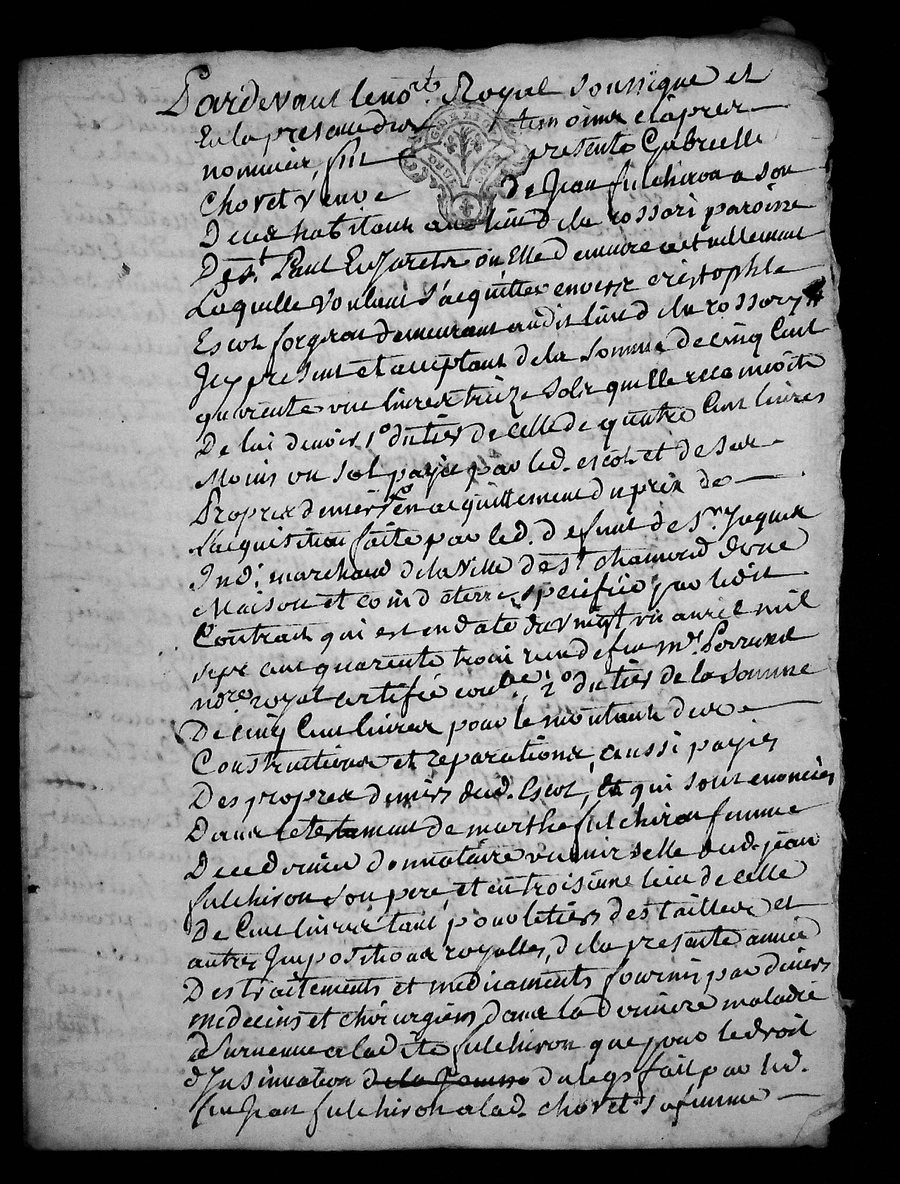 Pardevant le not. Royal soussigné et
En la presance des temoins cy apres
nommés, fut presente Gabrielle
Chovet veuve de Jean fulchiron a son
Deced habitant au lieu de la rossari paroisse
De st. Paul En Jarets ou Elle demeure actuellement
Laquelle voulant s'acquitter envers cristophle
Escot forgeron demeurant audit lieu de la rossary
Jcy present et acceptant de la somme de cinq cent
quarente une livres treize sols quelle reconnoit
De lui devoir 1° du tiers de celle de quatre Cent livres
Moins un sol payée par led. escot et de ses
Propres deniers en acquittement du prix de
L'acquisition faite par led. defunt de sr. Jaques
maison et coin de terre, specifiée par ledit
Contrat qui est en date du vingt un avril mil
sept cent quarente trois rendefeu me. Perrand
nore royal certifié coule, 2° du tiers de la somme
De cinq Cent livres pour le montant des
Constructions et reparations, aussi payés
Des propres deniers dud. Escot, et qui sont enoncées
Dans le testament de marthe fulchiron femme
De ced. donnataire universelle dud. jean
fulchiron son pere, et en troisieme lieu de celle
De Cent livres tant pour le tiers des tailles et
autres Jmpositions royalles, de la presente année
Des traitements et medicaments fournis par divers
medecins et chirurgiens dans la derniere maladie
Survenue a ladite fulchiron que pour le droit
d'Insinuation de la somme du legs fait par led.
feu Jean fulchiron a lad. chovet sa femme